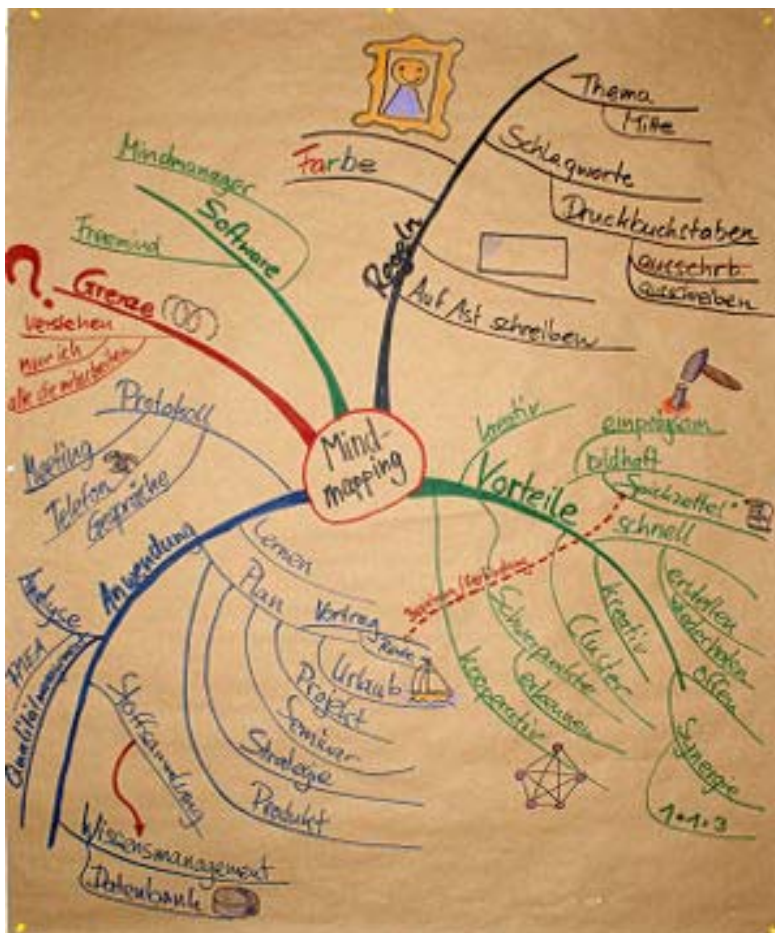 Mind-
mapping
Regeln
Thema
Mitte
Schlagworte
Druckbuchstaben
ausschreiben
Auf Ast schreiben
Farbe
Software
Mindmanager
Freemind
Grenze
?
verstehen
nur ich
alle die mitarbeiten
Anwendung
Protokoll
Meeting
Telefon
Gespräche
Lernen
Plan
Vortrag
Rede
Urlaub
Projekt
Seminar
Strategie
Produkt
Analyse
Stoffsammlung
Wissensmanagement
Datenbank
Vorteile
kreativ
einprägsam
bildhaft
"Spickzettel"
schnell
erstellen
wiederholen
offen
kreativ
Cluster
Schwerpunkte
erkennen
kooperativ
Synergie
1+1=3